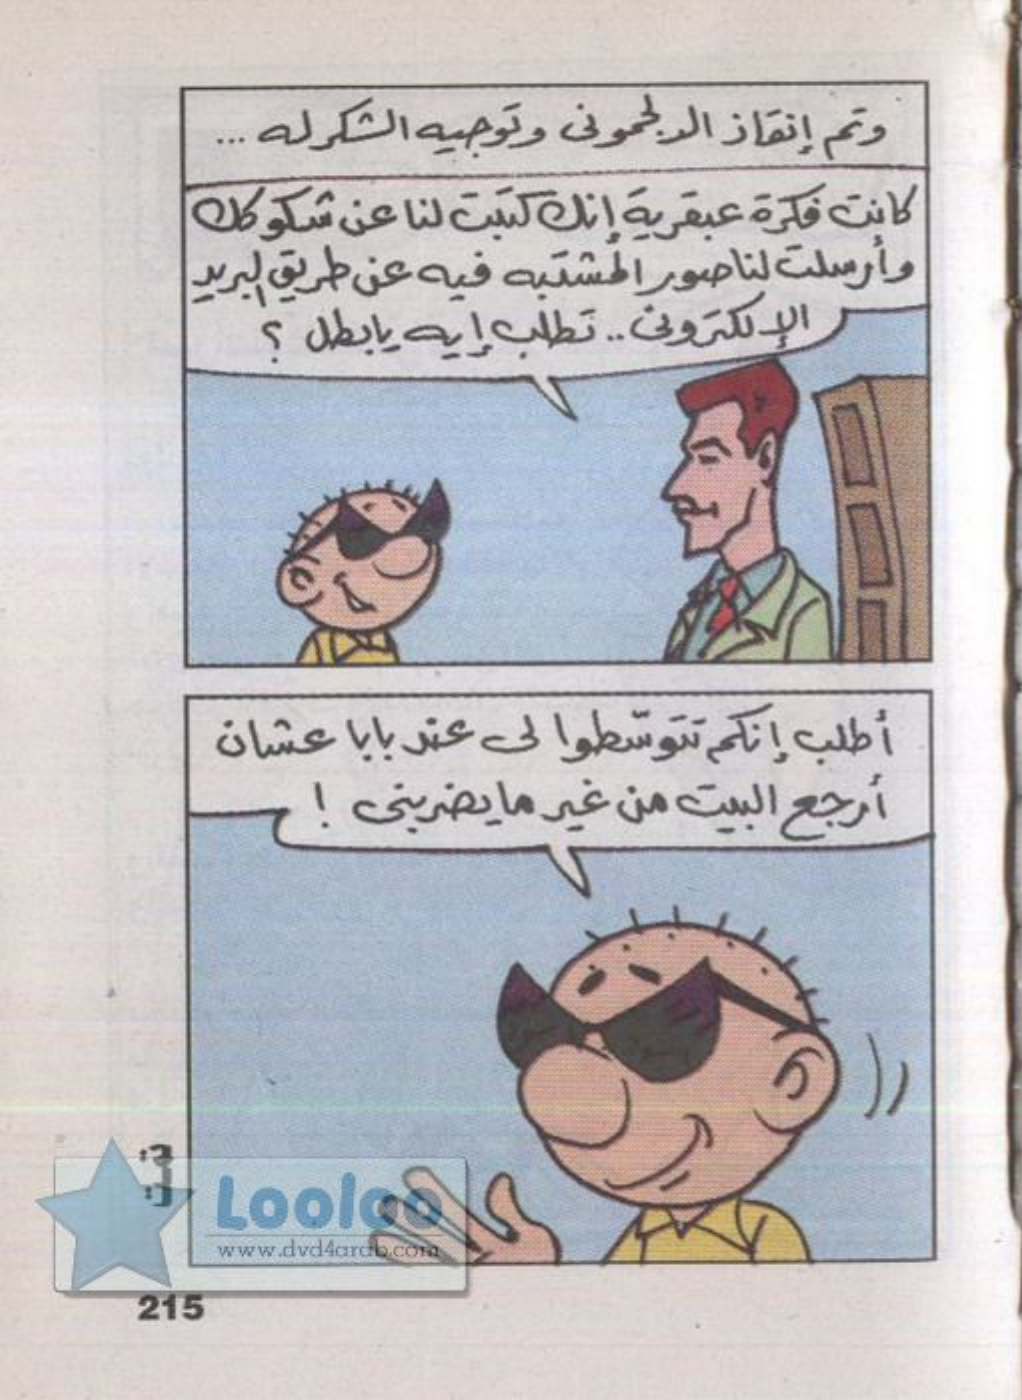 وتم إنقاذ الدلجمونى وتوجيه الشكر له ...
كانت فكرة عبقرية إنك كتبت لنا عن شكوكك
وأرسلت لنا صور المشتبه فيه عن طريق البريد
الإلكترونى .. تطلب إيه يا بطل ؟
أطلب إنكم تتوسّطوا لى عند بابا عشان
أرجع البيت من غير ما يضربنى !
Looloo
www.dvd4arab.com
215